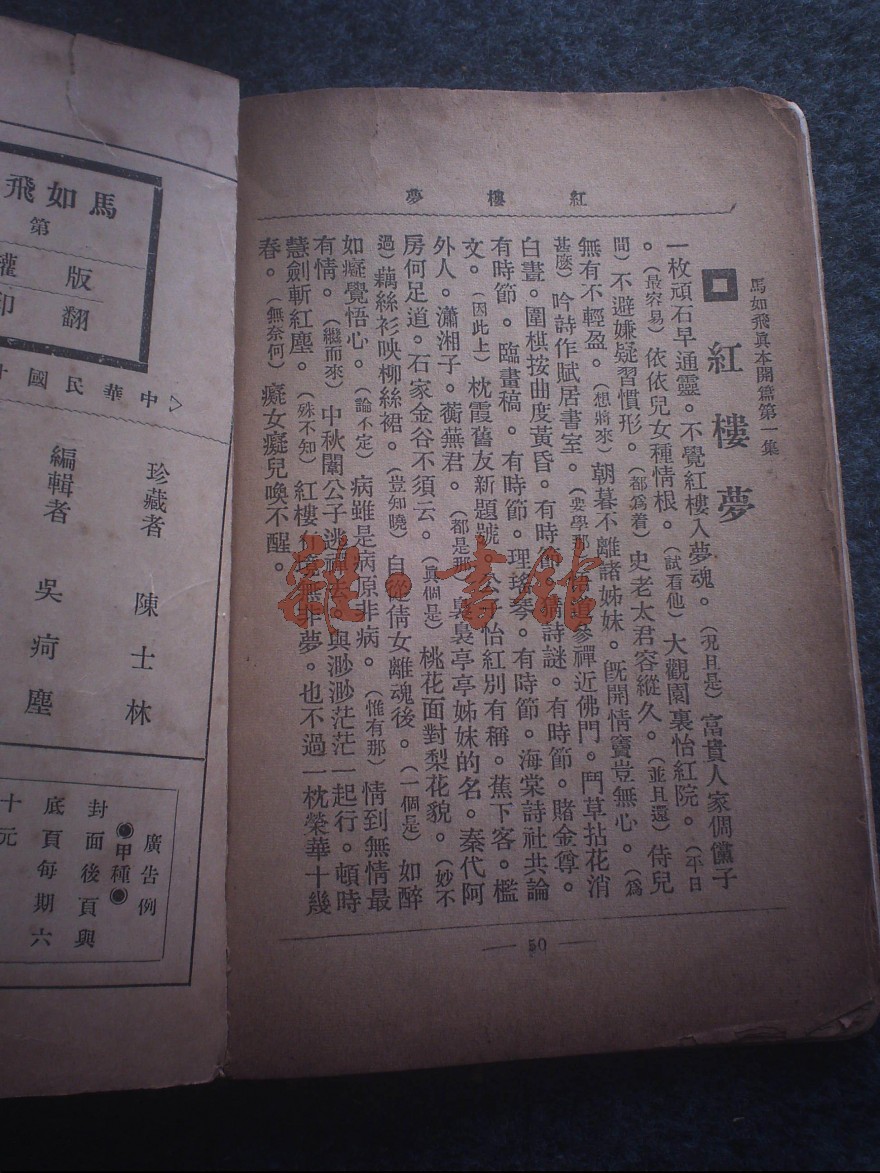 紅樓夢
馬如飛眞本開篇第一集
紅樓夢
一枚頑石早通靈。不覺紅樓入夢魂。(況且是)富貴人家倜儻子
。(最容易)依依兒女種情根。(試看他)大觀園裏怡紅院。(平日
間)不避嫌疑習慣形。(都爲着)史老太君容縱久。(並且還)侍兒
無有不輕盈。(想將來)朝暮不離諸姊妹。旣開情竇豈無心。(爲
甚麽)吟詩作賦居書室。(要學那)道參禪近佛門。鬥草拈花消
白晝。圍棋按曲度黃昏。有時節。猜詩謎。有時節。賭金尊。
有時節。臨畫稿。有時節。理瑤琴。有時節。海棠詩社共論
文。(因此上)枕霞舊友新題號。公子怡紅別有稱。蕉下客。檻
外人。瀟湘子。蘅蕪君。(都是那)裊裊亭亭姊妹的名。秦代阿
房何足道。石家金谷不須云。(眞個是)桃花面對梨花貌。(妙不
過)藕絲衫映柳絲裙。(豈知曉)自從倩女離魂後。(一個是)如醉
如癡覺悟心。(論不定)病雖是病原非病。(惟有那)情到無情最
有情。(繼而來)中秋闈公子逃禪去。與渺渺茫茫一起行。頓時
慧劍斬紅塵。(殊不知)紅樓境無非夢。也不過一枕榮華十幾
春。(無奈何)癡女癡兒喚不醒。
50
雜·書館
馬如飛
第
版權
翻印
中華民國
珍藏者 陳士林
編輯者 吳疴塵
廣告例
◉甲種◉
封面後頁與
底頁每期六
十元